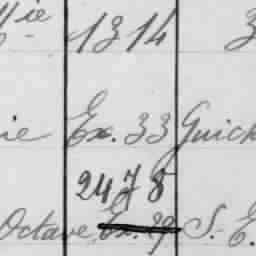 ie 1314 3
ie Ex. 33 Guich
2478
Octave Ex. 39 S. E.